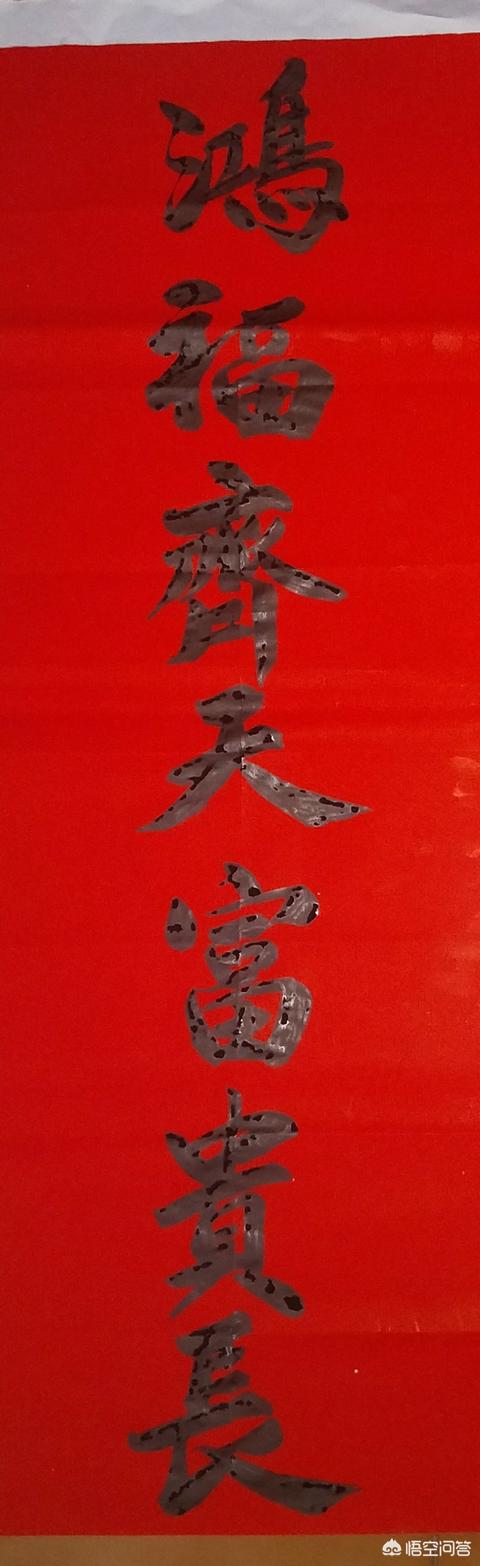 鴻福齊天富貴長
悟空问答